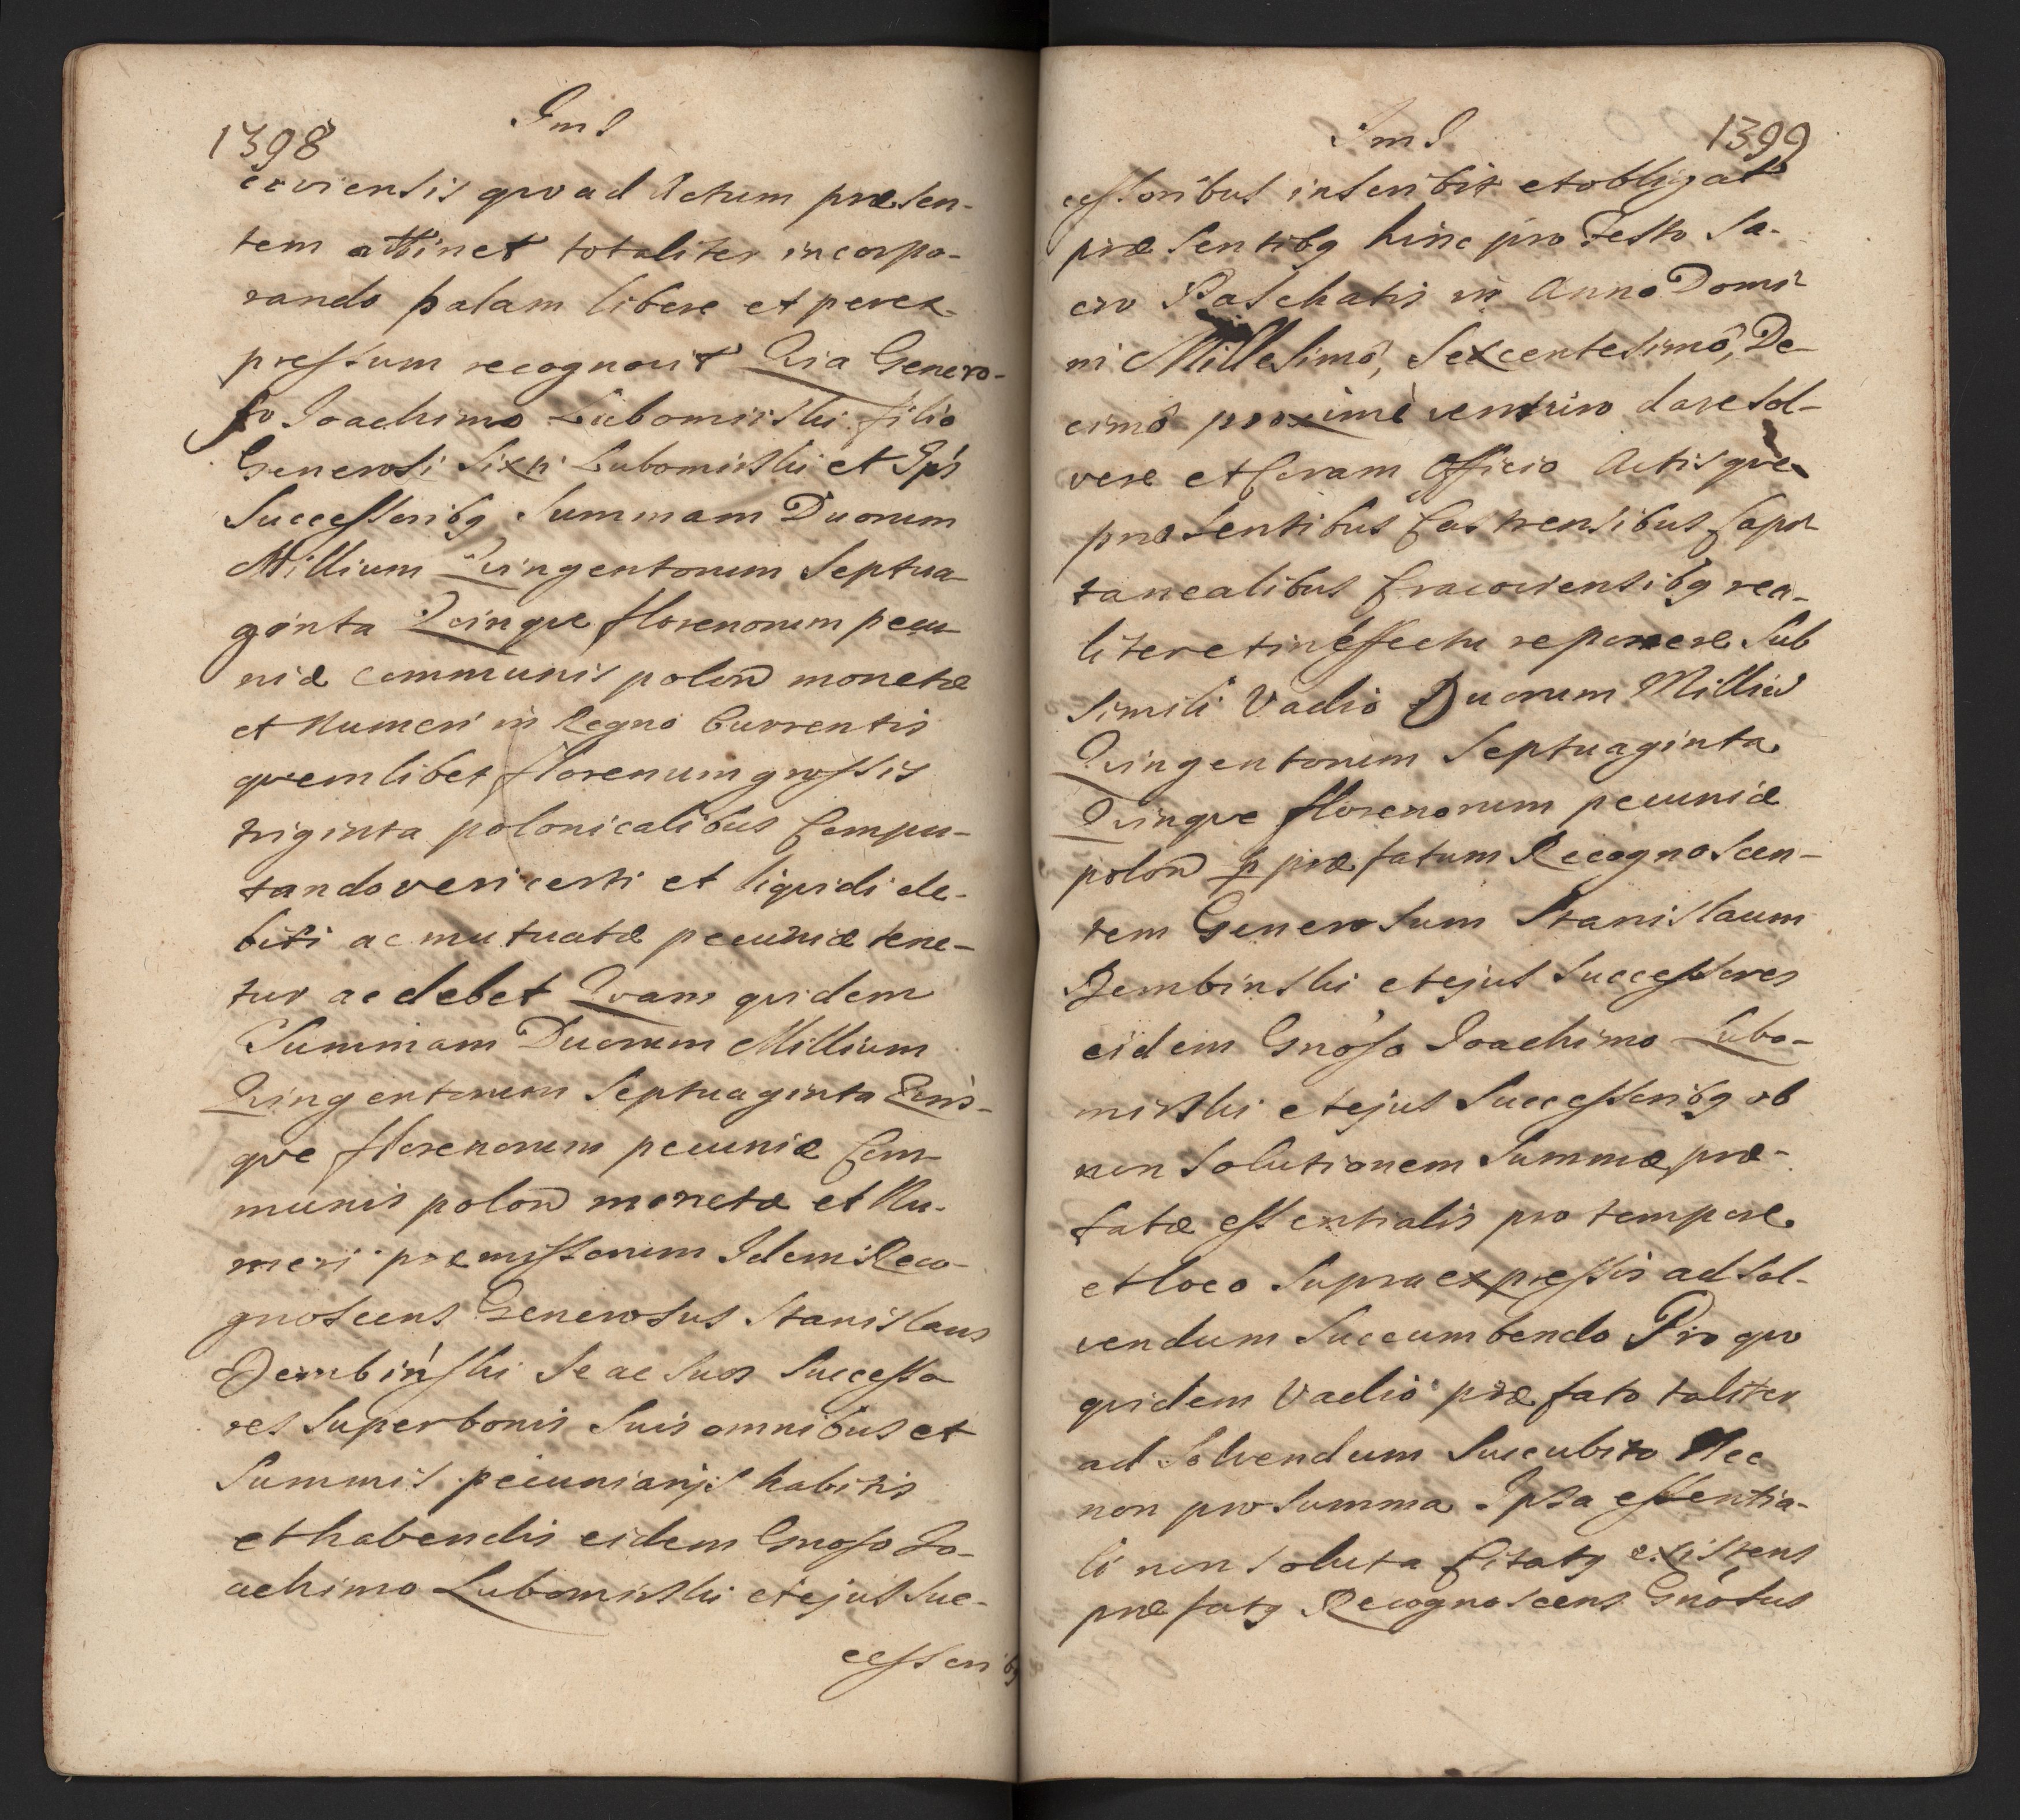 1398
JmS
coviensis quo ad Actum præsen-
tem attinet totaliter incorpo-
rando palam libere et perex-
pressum recognovit Quia Genero-
so Joachimo Lubomirski filio
Generosi Sixti Lubomirski et Ips
Successoribq Summam Duorum
Millium Quingentorum Septua
ginta Quinque florenorum pecu-
niæ communis polon monetæ
et Numeri in Regno Currentis
quemlibet florenum grossis
triginta polonicalibus Compu-
tando veri certi et liquidi de-
biti ac mutuatæ pecuniæ tene-
tur ac debet Quam quidem
Summam Duorum Millium
Quingentorum Septuaginta Quin-
que florenorum pecuniæ Com-
munis polon monetæ et Nu-
meri præmissorum Idem Reco-
gnoscens Generosus Stanislaus
Dembinski Se ac Suos Successo
res Super bonis Suis omnibus et
Summis pecuniarijs habitis
et habendis eidem Gnoso Jo-
achimo Lubomirski et ejus Suc-
cessoribq
JmS
1399
cessoribus inscribit et obligat
præsentibq hinc pro Festo Sa-
cro Paschatis in Anno Domi-
ni Millesimo, Sexcentesimo, De-
cimo proxime venturo dare Sol-
vere et Coram Officio Actisque
præsentibus Castrensibus Capi-
tanealibus Cracoviensibq rea-
liter et in effectu reponere Sub
Simili Vadio Duorum Milliu
Quingentorum Septuaginta
Quinque florenorum pecuniæ
polon p præfatum Recognoscen-
tem Generosum Stanislaum
Dembinski et ejus Successores
eidem Gnoso Joachimo Lubo-
mirski et ejus Successoribq ob
non Solutionem Summæ præ-
fatæ essentialis pro tempore
et loco Supra expressis ad Sol-
vendum Succumbendo Pro quo
quidem Vadio præfato taliter
ad Solvendum Succubito Nec
non pro Summa Ipsa essentia-
li non Soluta Citatq existens
præfatq Recognoscens Gnosus